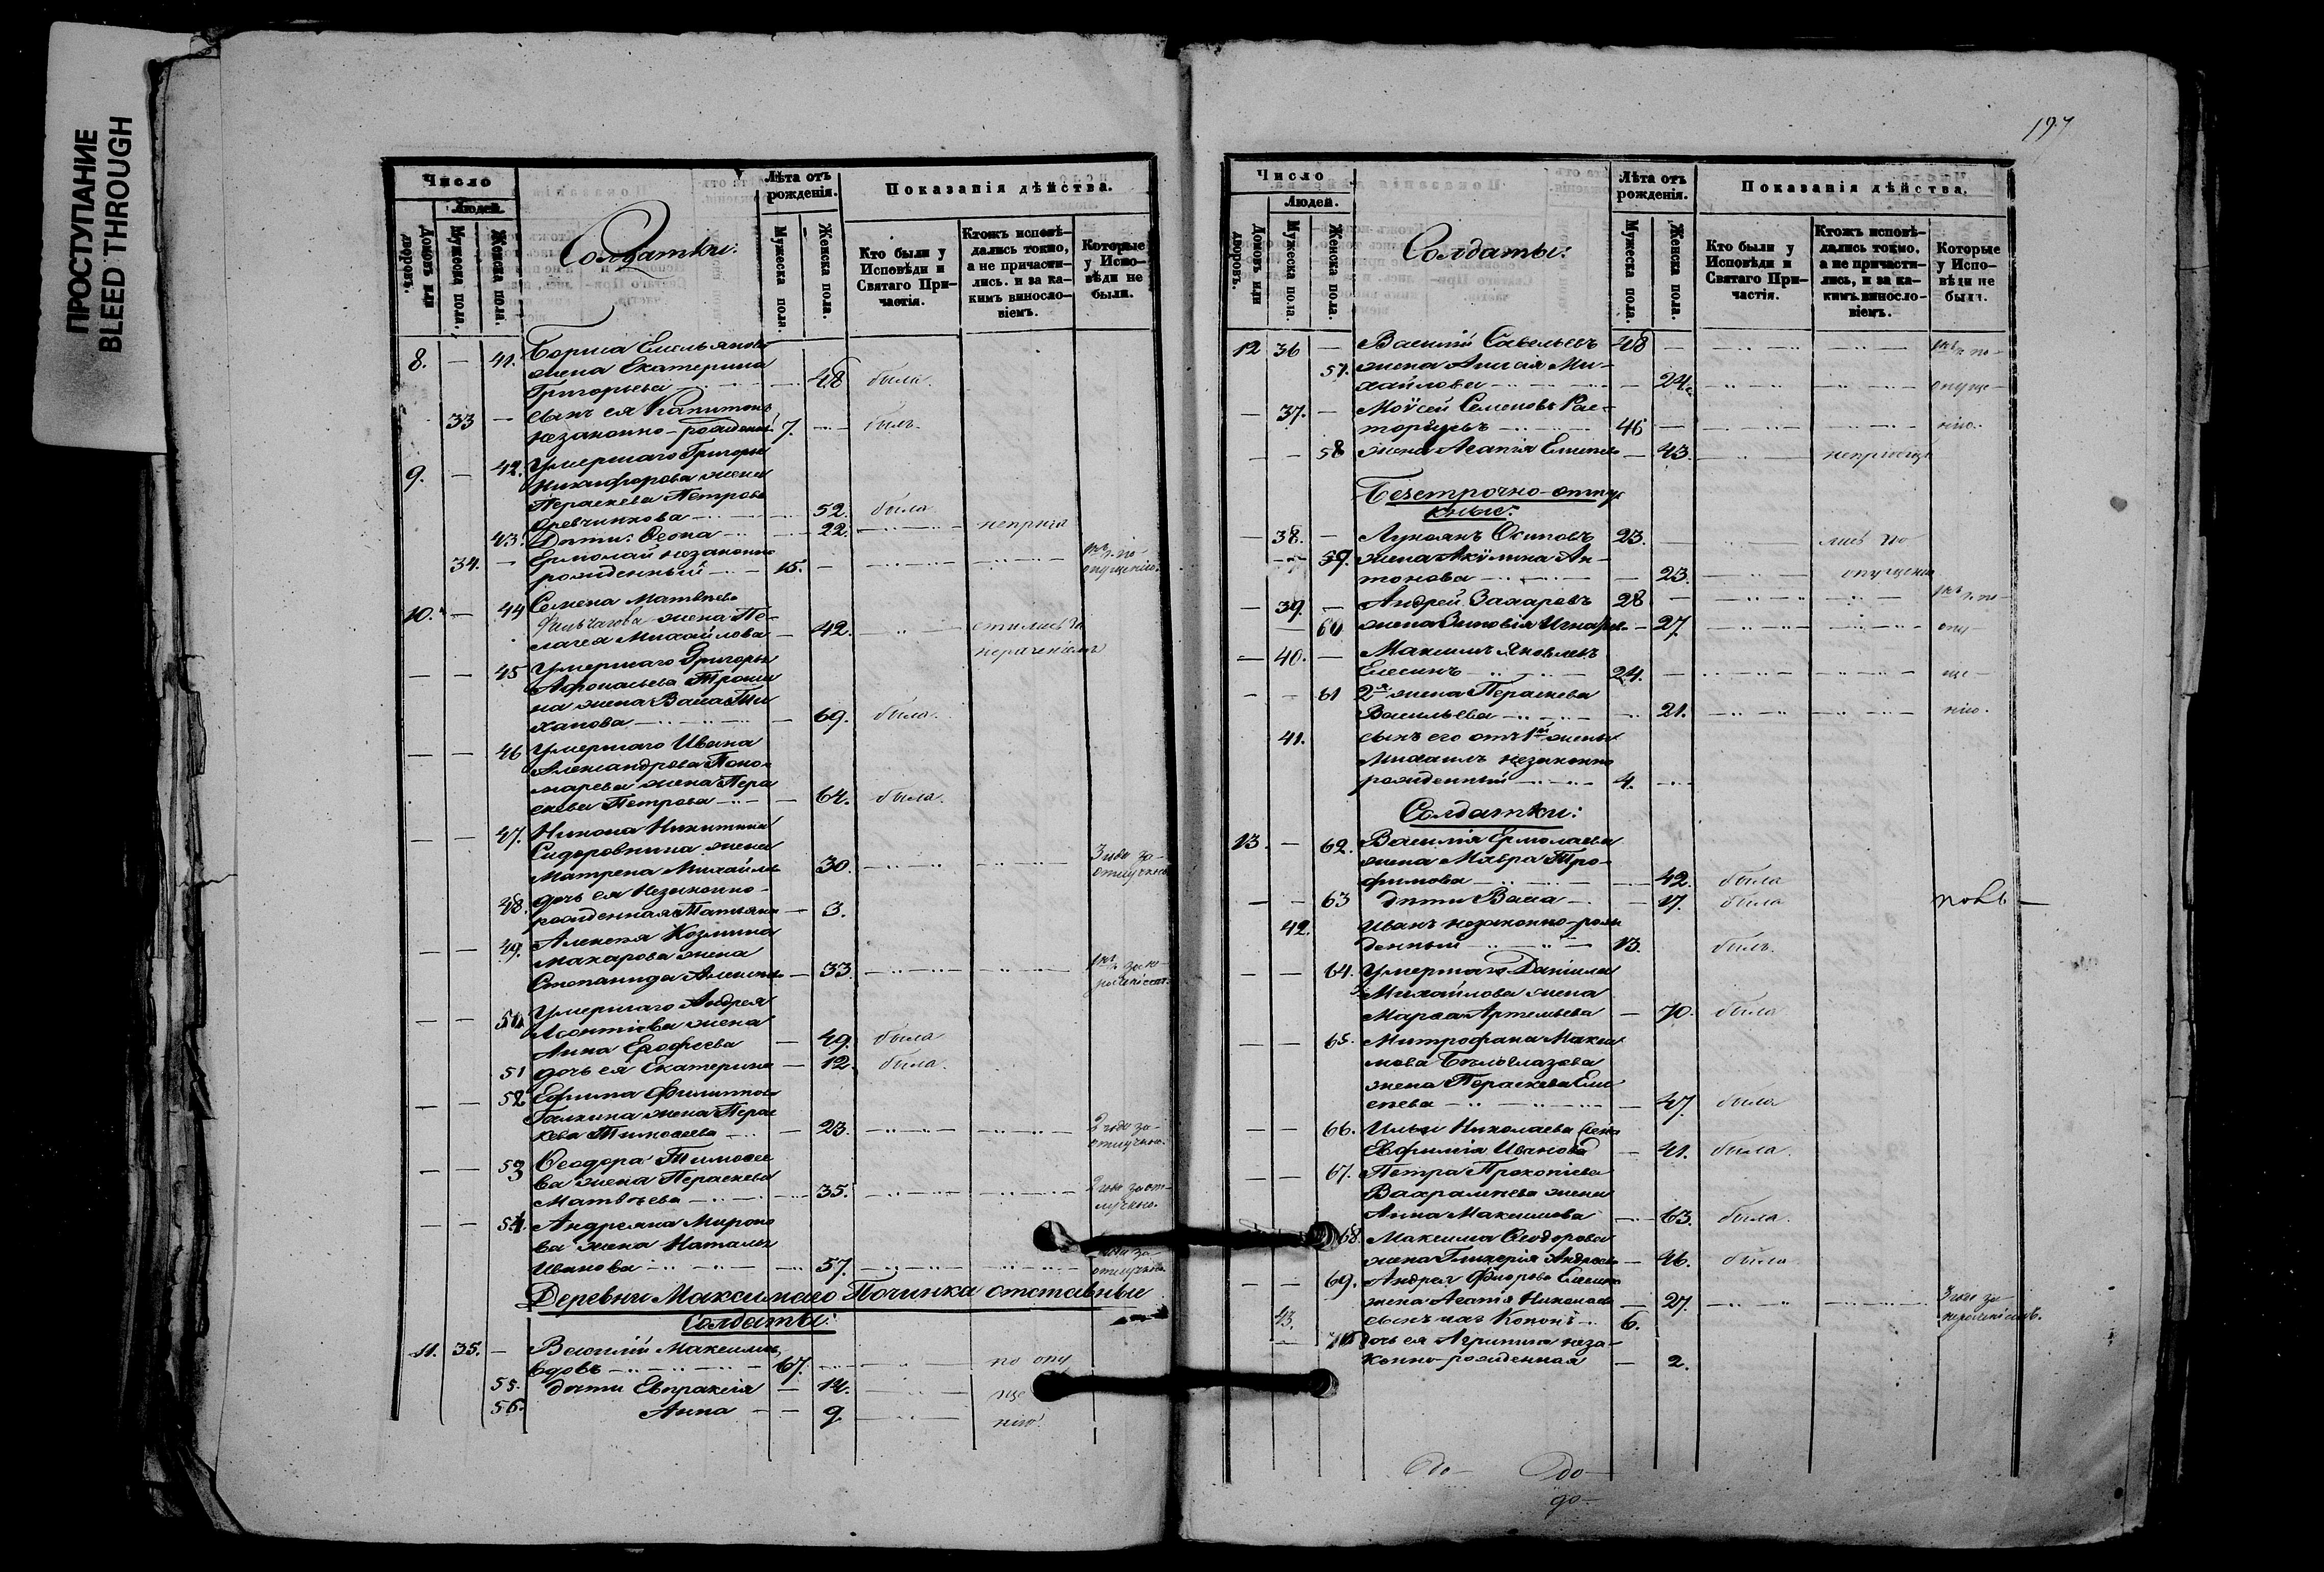 ПРОСТУПАНИЕ
BLEED THROUGH
Число
Людей.
Домовъ или дворовъ.
Мужеска пола.
Женска пола.
Солдатки:
Лѣта отъ рожденія.
Мужеска пола.
Женска пола.
Показанія дѣйства.
Кто были у Исповѣди и Святаго Причастія.
Ктожъ исповѣдались токмо, а не причастились. и за какимъ винословіемъ.
Которые у Исповѣди не были.
8. — 41. Бориса Емельянова
жена Екатерина
Григорьева 48 была.
33 — сынъ ея Капитонъ
незаконно-рожденный 7. былъ.
9. — 42. Умершаго Григорья
Никифорова жена
Параскева Петрова
52. была
43. Дѣти: Ѳеона 22.
34. — Ермолай незаконно
рожденный 15. опущенію.
10. — 44 Семена Матвѣева
жена Пе-
лагея Михайлова — 42.
нераченіемъ
— — 45 Умершаго Григорья
Афонасьева Трошки
на жена Васса Ти
ханова — 69. была.
— — 46 Умершаго Ивана
Александрова Поно-
марева жена Пара
скева Петрова — 64. была.
— — 47. Никона Никитина
Сидоровнина жена
Матрена Михайлова 30. 3 года за
отлучкою
48. дочь ея Незаконно-
рожденная Татьяна — 3.
— — 49. Алексѣя Козмина
Макарова жена
Степанида Алексѣева — 33.
— — 50 Умершаго Андрея
Леонтіева жена
Анна Ерофеева — 49. была
51 дочь ея Екатерина — 12. была.
— — 52 Ефима Филиппова
Галкина жена Парас
кева Тимофеева — 23. 2 года за
отлучкою.
— — 53 Ѳеодора Тимофее
ва жена Параскева
Матвѣева 35. 2 года за от-
лучкою.
— — 54. Андреяна Мироно
ва жена Наталья
Иванова 57. отлучкою
Деревни Максимова Починка отставные
Солдаты:
11. 35. — Василій Максимовъ,
вдовъ 67. по опу
55. дѣти Евпраксія — 14. ще
56. Анна — 9 нію.
197
Число
Людей.
Домовъ или дворовъ.
Мужеска пола.
Женска пола.
Солдаты:
Лѣта отъ рожденія.
Мужеска пола.
Женска пола.
Показанія дѣйства.
Кто были у Исповѣди и Святаго Причастія.
Ктожъ исповѣдались токмо. а не причастились, и за какимъ винословіемъ.
Которые у Исповѣди не были.
12 36 — Василій Савельевъ 48 по-
57. жена Анисія Ми-
хайлова — 24. опуще-
— 37. — Моѵсей Семеновъ Рас-
торгуевъ 46 — нію.
— — 58 жена Агапія — 43.
Безсрочно-отпус
кные:
— 38. — Лукоянъ Осиповъ 23. по
59. жена Акулина Ан-
тонова — 23. опущенію
— 39. — Андрей Захаровъ 28 по-
— 60 жена Зиновія — 27. опу-
— 40. — Максимъ Яковлевъ
Елесинъ 24. ще-
— — 61 2я жена Параскева
Васильева 21. нію.
41. сынъ его отъ 1й жены
Михаилъ незаконно
рожденный 4.
Солдатки:
13. — 62. Василія Ермолаева
жена Мавра Тро-
фимова 42. была
— — 63 дѣти Васса — 17. была
42. Иванъ незаконно-рож
денный 13. былъ.
— — 64. Умершаго Даніила
Михайлова жена
Марѳа Артемьева — 70. была
— — 65. Митрофана Макси
мова Бѣлоглазова
жена Параскева Ели
сеева — 47. была
— — 66. Ильи Николаева жена
Евфимія Иванова — 41. была.
— — 67. Петра Прокопіева
Варѳоломѣева жена
Анна Максимова 63. была.
68. Максима Ѳеодорова
жена Гликерія Андреева — 46. была
— — 69. Андрея
жена Агапія Николаева — 27. 3 года за
43. сынъ Кононъ 6. нераченіемъ.
— 70 дочь ея Агрипина неза-
конно-рожденная — 2.
до — до —
до —